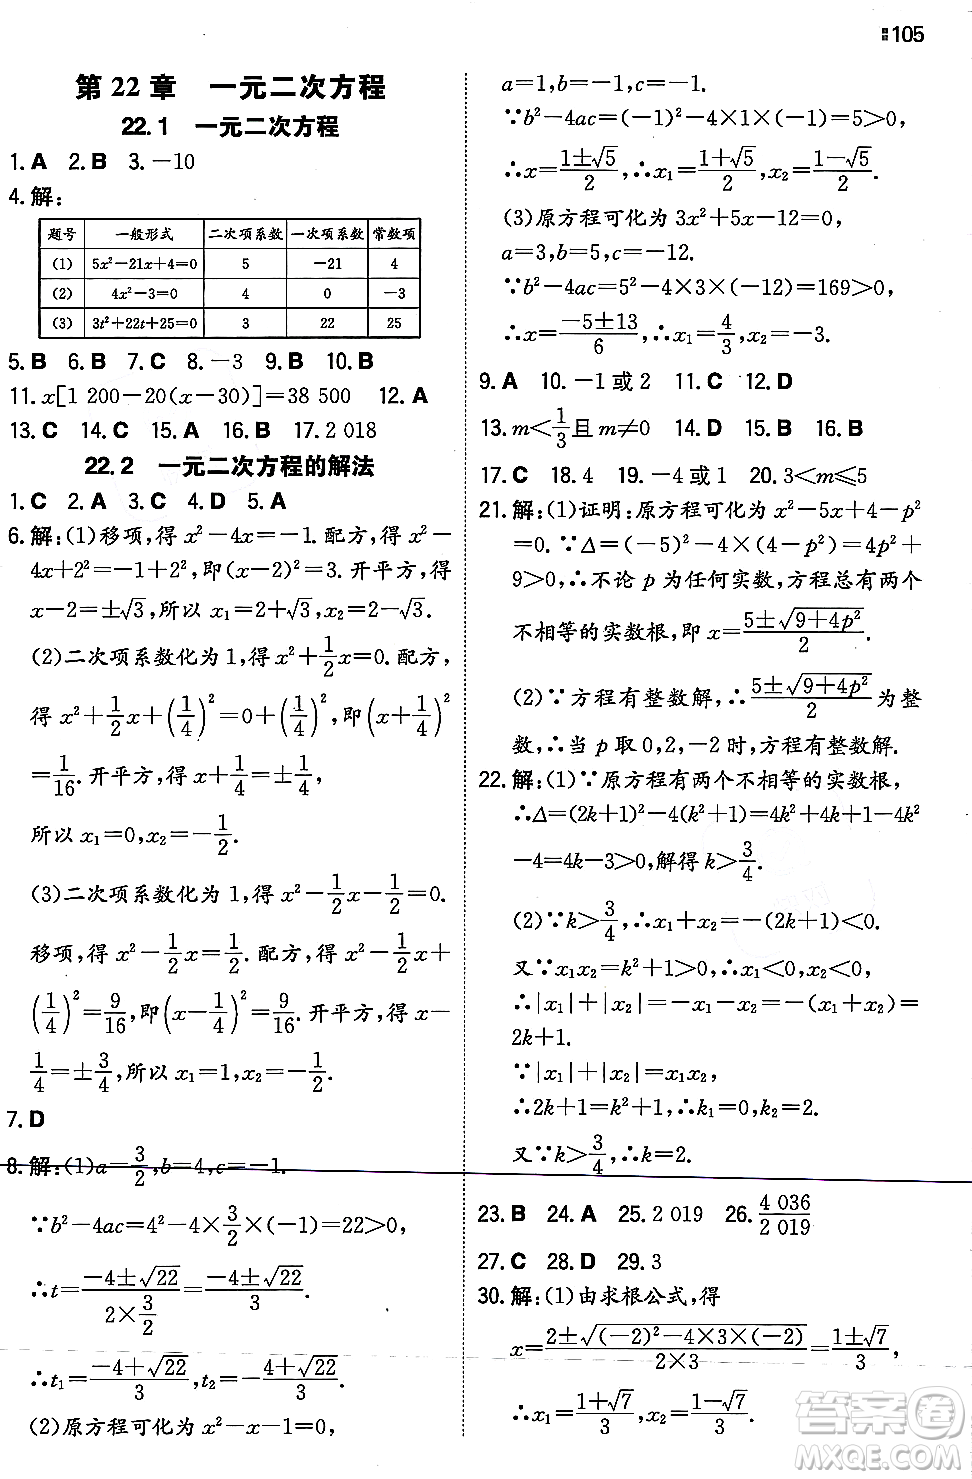 105
第 22 章　一元二次方程
22.1　一元二次方程
1. A　2. B　3. －10
4. 解：
题号　一般形式　二次项系数　一次项系数　常数项
(1)　5x²－21x＋4＝0　5　－21　4
(2)　4x²－3＝0　4　0　－3
(3)　3t²＋22t＋25＝0　3　22　25
5. B　6. B　7. C　8. －3　9. B　10. B
11. x[1 200－20(x－30)]＝38 500　12. A
13. C　14. C　15. A　16. B　17. 2 018
22.2　一元二次方程的解法
1. C　2. A　3. C　4. D　5. A
6. 解：(1)移项，得 x²－4x＝－1. 配方，得 x²－
4x＋2²＝－1＋2²，即(x－2)²＝3. 开平方，得
x－2＝±√3，所以 x₁＝2＋√3，x₂＝2－√3.
(2)二次项系数化为 1，得 x²＋1/2x＝0. 配方，
得 x²＋1/2x＋(1/4)²＝0＋(1/4)²，即(x＋1/4)²
＝1/16. 开平方，得 x＋1/4＝±1/4，
所以 x₁＝0，x₂＝－1/2.
(3)二次项系数化为 1，得 x²－1/2x－1/2＝0.
移项，得 x²－1/2x＝1/2. 配方，得 x²－1/2x＋
(1/4)²＝9/16，即(x－1/4)²＝9/16. 开平方，得 x－
1/4＝±3/4，所以 x₁＝1，x₂＝－1/2.
7. D
8. 解：(1)a＝3/2，b＝4，c＝－1.
∵b²－4ac＝4²－4×3/2×(－1)＝22＞0，
∴t＝(－4±√22)/(2×3/2)＝(－4±√22)/3.
∴t₁＝(－4＋√22)/3，t₂＝－(4＋√22)/3.
(2)原方程可化为 x²－x－1＝0，
a＝1，b＝－1，c＝－1.
∵b²－4ac＝(－1)²－4×1×(－1)＝5＞0，
∴x＝(1±√5)/2，∴x₁＝(1＋√5)/2，x₂＝(1－√5)/2.
(3)原方程可化为 3x²＋5x－12＝0，
a＝3，b＝5，c＝－12.
∵b²－4ac＝5²－4×3×(－12)＝169＞0，
∴x＝(－5±13)/6，∴x₁＝4/3，x₂＝－3.
9. A　10. －1 或 2　11. C　12. D
13. m＜1/3且 m≠0　14. D　15. B　16. B
17. C　18. 4　19. －4 或 1　20. 3＜m≤5
21. 解：(1)证明：原方程可化为 x²－5x＋4－p²
＝0. ∵Δ＝(－5)²－4×(4－p²)＝4p²＋
9＞0，∴不论 p 为任何实数，方程总有两个
不相等的实数根，即 x＝(5±√(9＋4p²))/2.
(2)∵方程有整数解，∴(5±√(9＋4p²))/2为整
数，∴当 p 取 0，2，－2 时，方程有整数解.
22. 解：(1)∵原方程有两个不相等的实数根，
∴Δ＝(2k＋1)²－4(k²＋1)＝4k²＋4k＋1－4k²
－4＝4k－3＞0，解得 k＞3/4.
(2)∵k＞3/4，∴x₁＋x₂＝－(2k＋1)＜0.
又∵x₁x₂＝k²＋1＞0，∴x₁＜0，x₂＜0，
∴|x₁|＋|x₂|＝－x₁－x₂＝－(x₁＋x₂)＝
2k＋1.
∵|x₁|＋|x₂|＝x₁x₂，
∴2k＋1＝k²＋1，∴k₁＝0，k₂＝2.
又∵k＞3/4，∴k＝2.
23. B　24. A　25. 2 019　26. 4 036/2 019
27. C　28. D　29. 3
30. 解：(1)由求根公式，得
x＝(2±√((－2)²－4×3×(－2)))/(2×3)＝(1±√7)/3，
∴x₁＝(1＋√7)/3，x₂＝(1－√7)/3.
答案圈
MXQE.COM